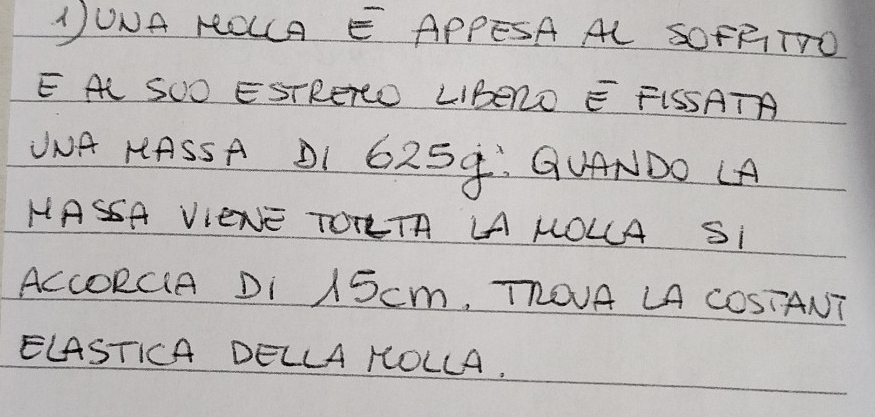 1) UNA MOLLA È APPESA AL SOFFITTO
E AL SUO ESTREMO LIBERO È FISSATA
UNA MASSA DI 625g. QUANDO LA
MASSA VIENE TOLTA LA MOLLA SI
ACCORCIA DI 15cm. TROVA LA COSTANT
ELASTICA DELLA MOLLA.